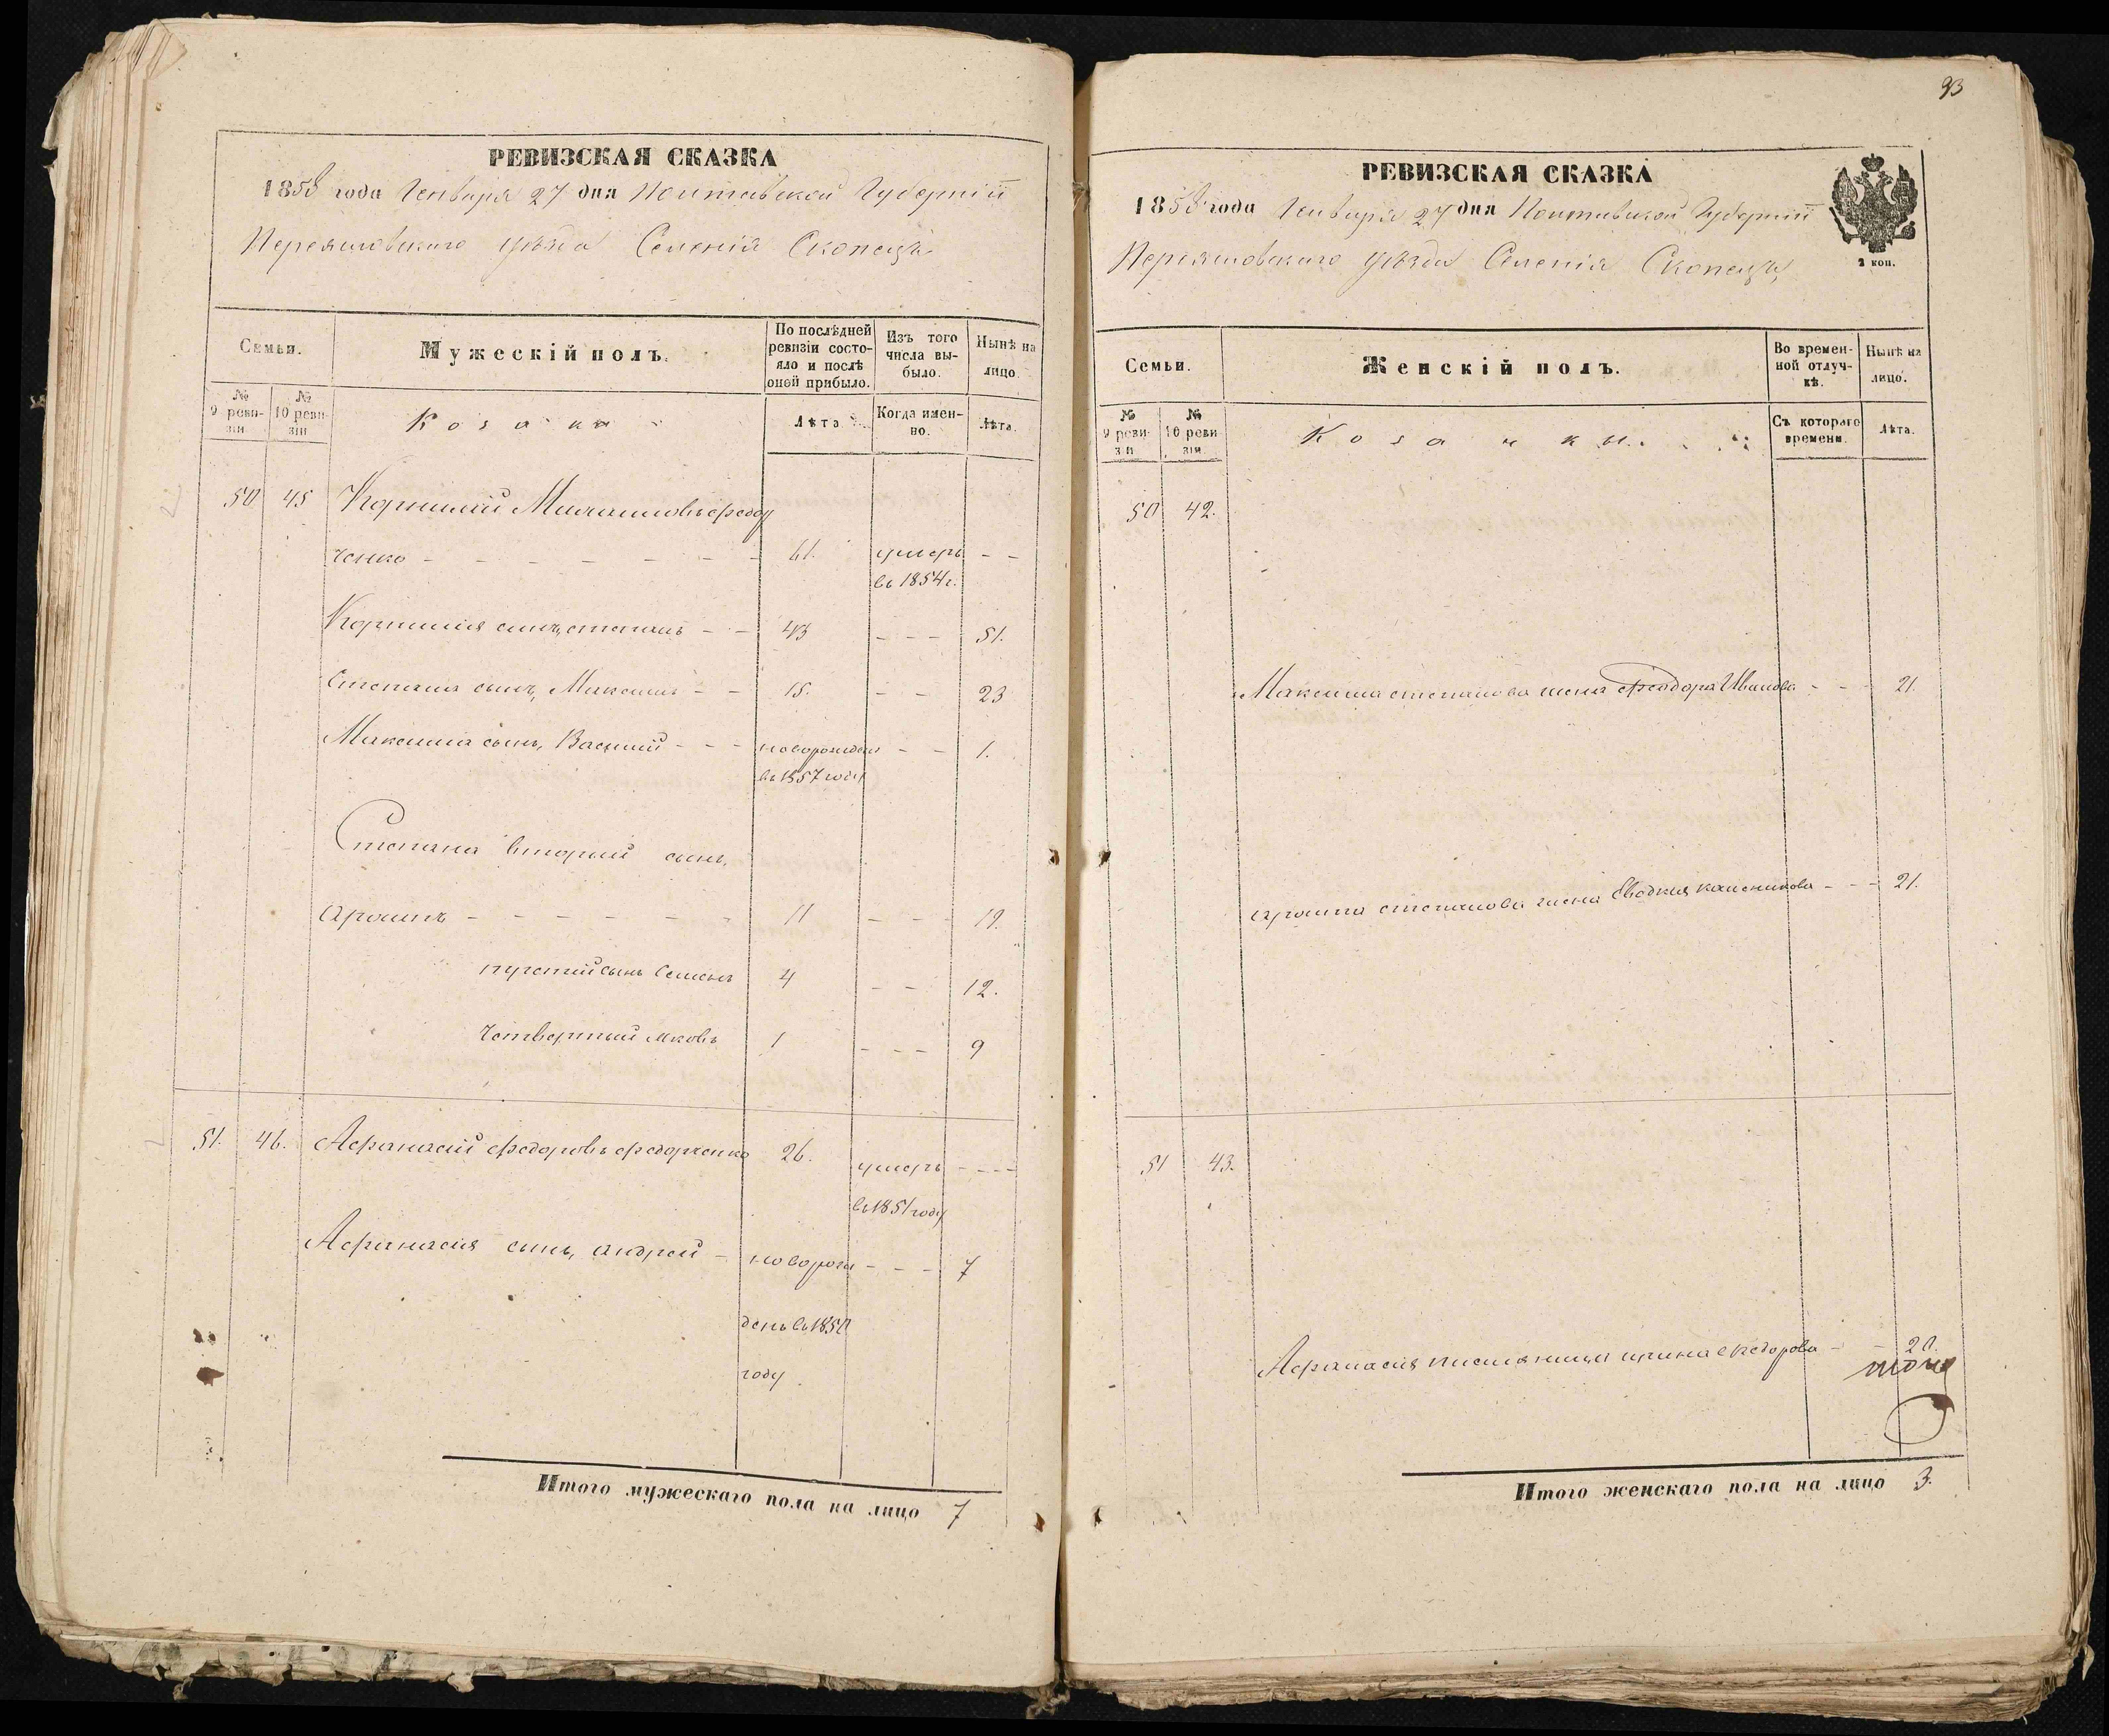 РЕВИЗСКАЯ СКАЗКА
1858 года Генваря 27 дня Полтавской Губернiи
Переяславскаго уѣзда Селенiя Скопецкъ
Семьи.
Мужескiй полъ.
По послѣдней ревизiи состояло и послѣ оной прибыло.
Изъ того числа выбыло.
Нынѣ на лицо.
№ 9 ревизiи
№ 10 ревизiи
Козаки
Лѣта.
Когда именно.
Лѣта.
50 45 Корнилiй федор
ченко - - - - - - - 61. умеръ - -
въ 1854 г.
Корнилiя сынъ, степанъ - - 43 - - - 51.
Степана сынъ, Максимъ - - 15. - - 23
Максима сынъ, Василiй - - - новорожден - - 1.
въ 1857 году
Степана вторый сынъ,
- - - - - - 11 - - - 19.
сынъ Семенъ 4 - - 12.
Четвертый яковъ 1 - - - 9
51. 46. Афанасiй федоровъ федорченко 26. умеръ - - - -
въ 1851 году
Афанасiя сынъ, андрей - новорож - - - 7
денъ въ 1850
году
Итого мужескаго пола на лицо 7
93
РЕВИЗСКАЯ СКАЗКА
1858 года Генваря 27 дня Полтавской Губернiи
Переяславскаго уѣзда Селенiя Скопецкъ
2 коп.
Семьи.
Женскiй полъ.
Во временной отлучкѣ.
Нынѣ на лицо.
№ 9 ревизiи
№ 10 ревизiи
Козачки.
Съ котораго времени.
Лѣта.
50 42.
Максима степанова жена Феодора Иванова - - - 21.
степанова жена Евдокия - - - 21.
51 43.
Афанасiя - - 20.
Итого женскаго пола на лицо 3.